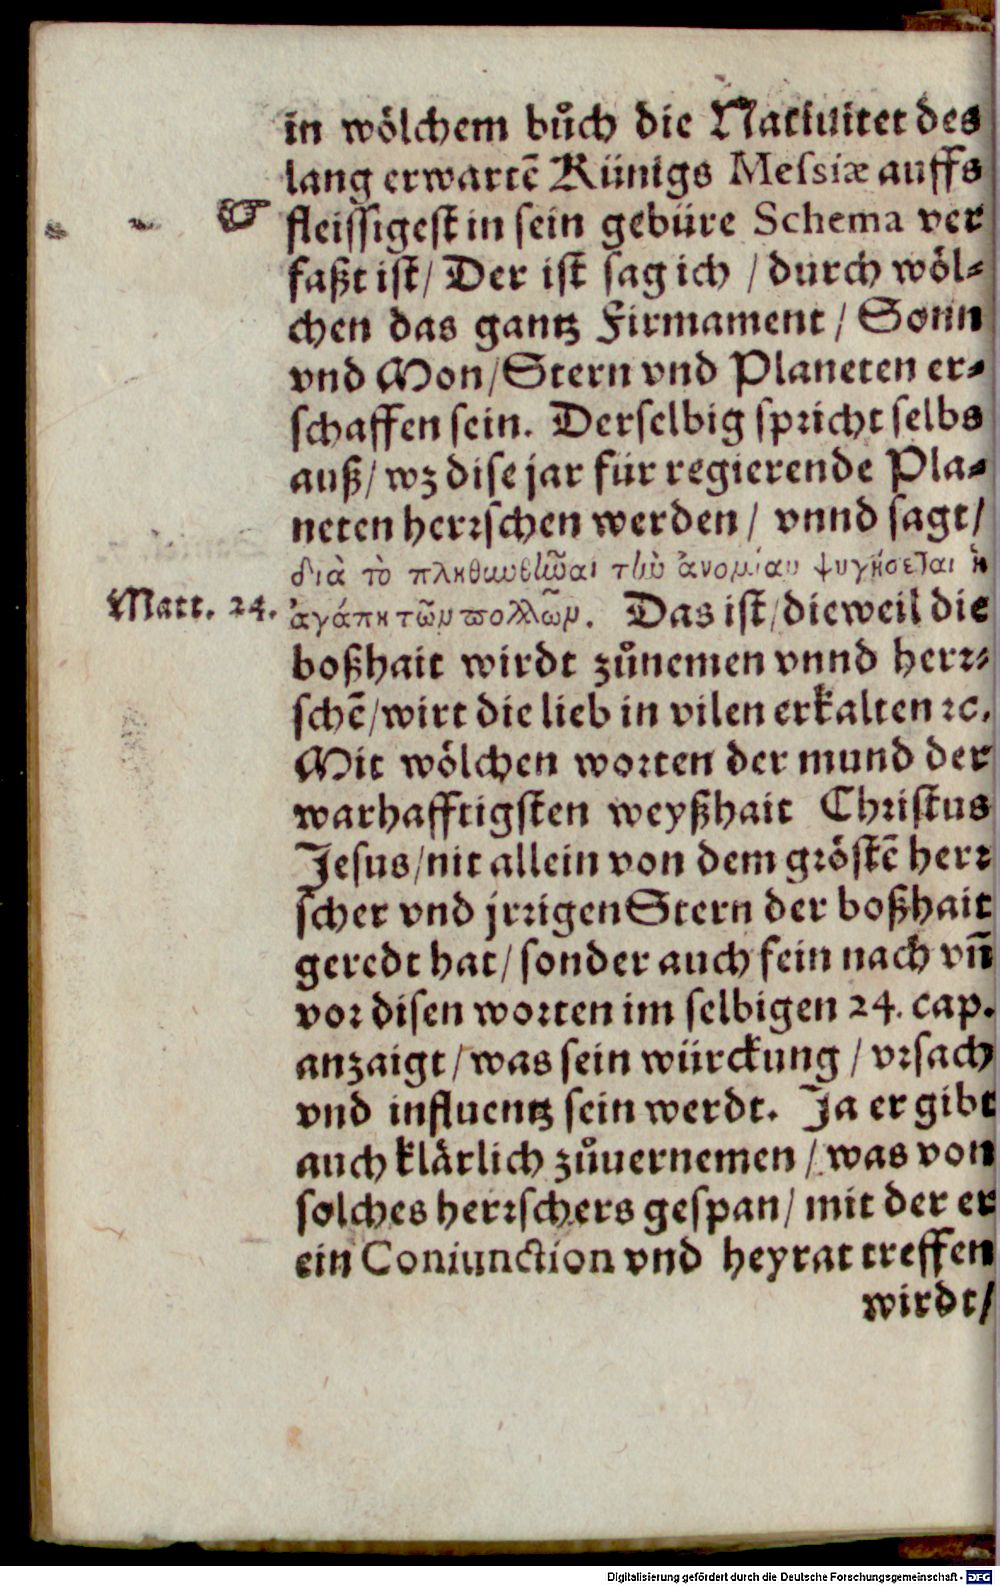 in wölchem bůch die Natiuitet des
lang erwartē Künigs Messiæ auffs
fleissigest in sein gebüre Schema ver
faßt ist/ Der ist sag ich / durch wöl⸗
chen das gantz Firmament / Sonn
vnd Mon/Stern vnd Planeten er⸗
schaffen sein. Derselbig spricht selbs
auß/ wz dise jar für regierende Pla⸗
neten herrschen werden/ vnnd sagt/
διὰ τὸ πληθυνθῆναι τὴν ἀνομίαν ψυγήσεται ἡ
Matt. 24. ἀγάπη τῶν πολλῶν. Das ist/dieweil die
boßhait wirdt zůnemen vnnd herr⸗
schē/wirt die lieb in vilen erkalten ꝛc.
Mit wölchen worten der mund der
warhafftigsten weyßhait Christus
Jesus/nit allein von dem gröstē herr
scher vnd jrrigen Stern der boßhait
geredt hat/ sonder auch fein nach vñ
vor disen worten im selbigen 24. cap.
anzaigt/was sein würckung / vrsach
vnd influentz sein werdt. Ja er gibt
auch klärlich zůuernemen / was von
solches herrschers gespan/ mit der er
ein Coniunction vnd heyrat treffen
wirdt/
Digitalisierung gefördert durch die Deutsche Forschungsgemeinschaft - DFG